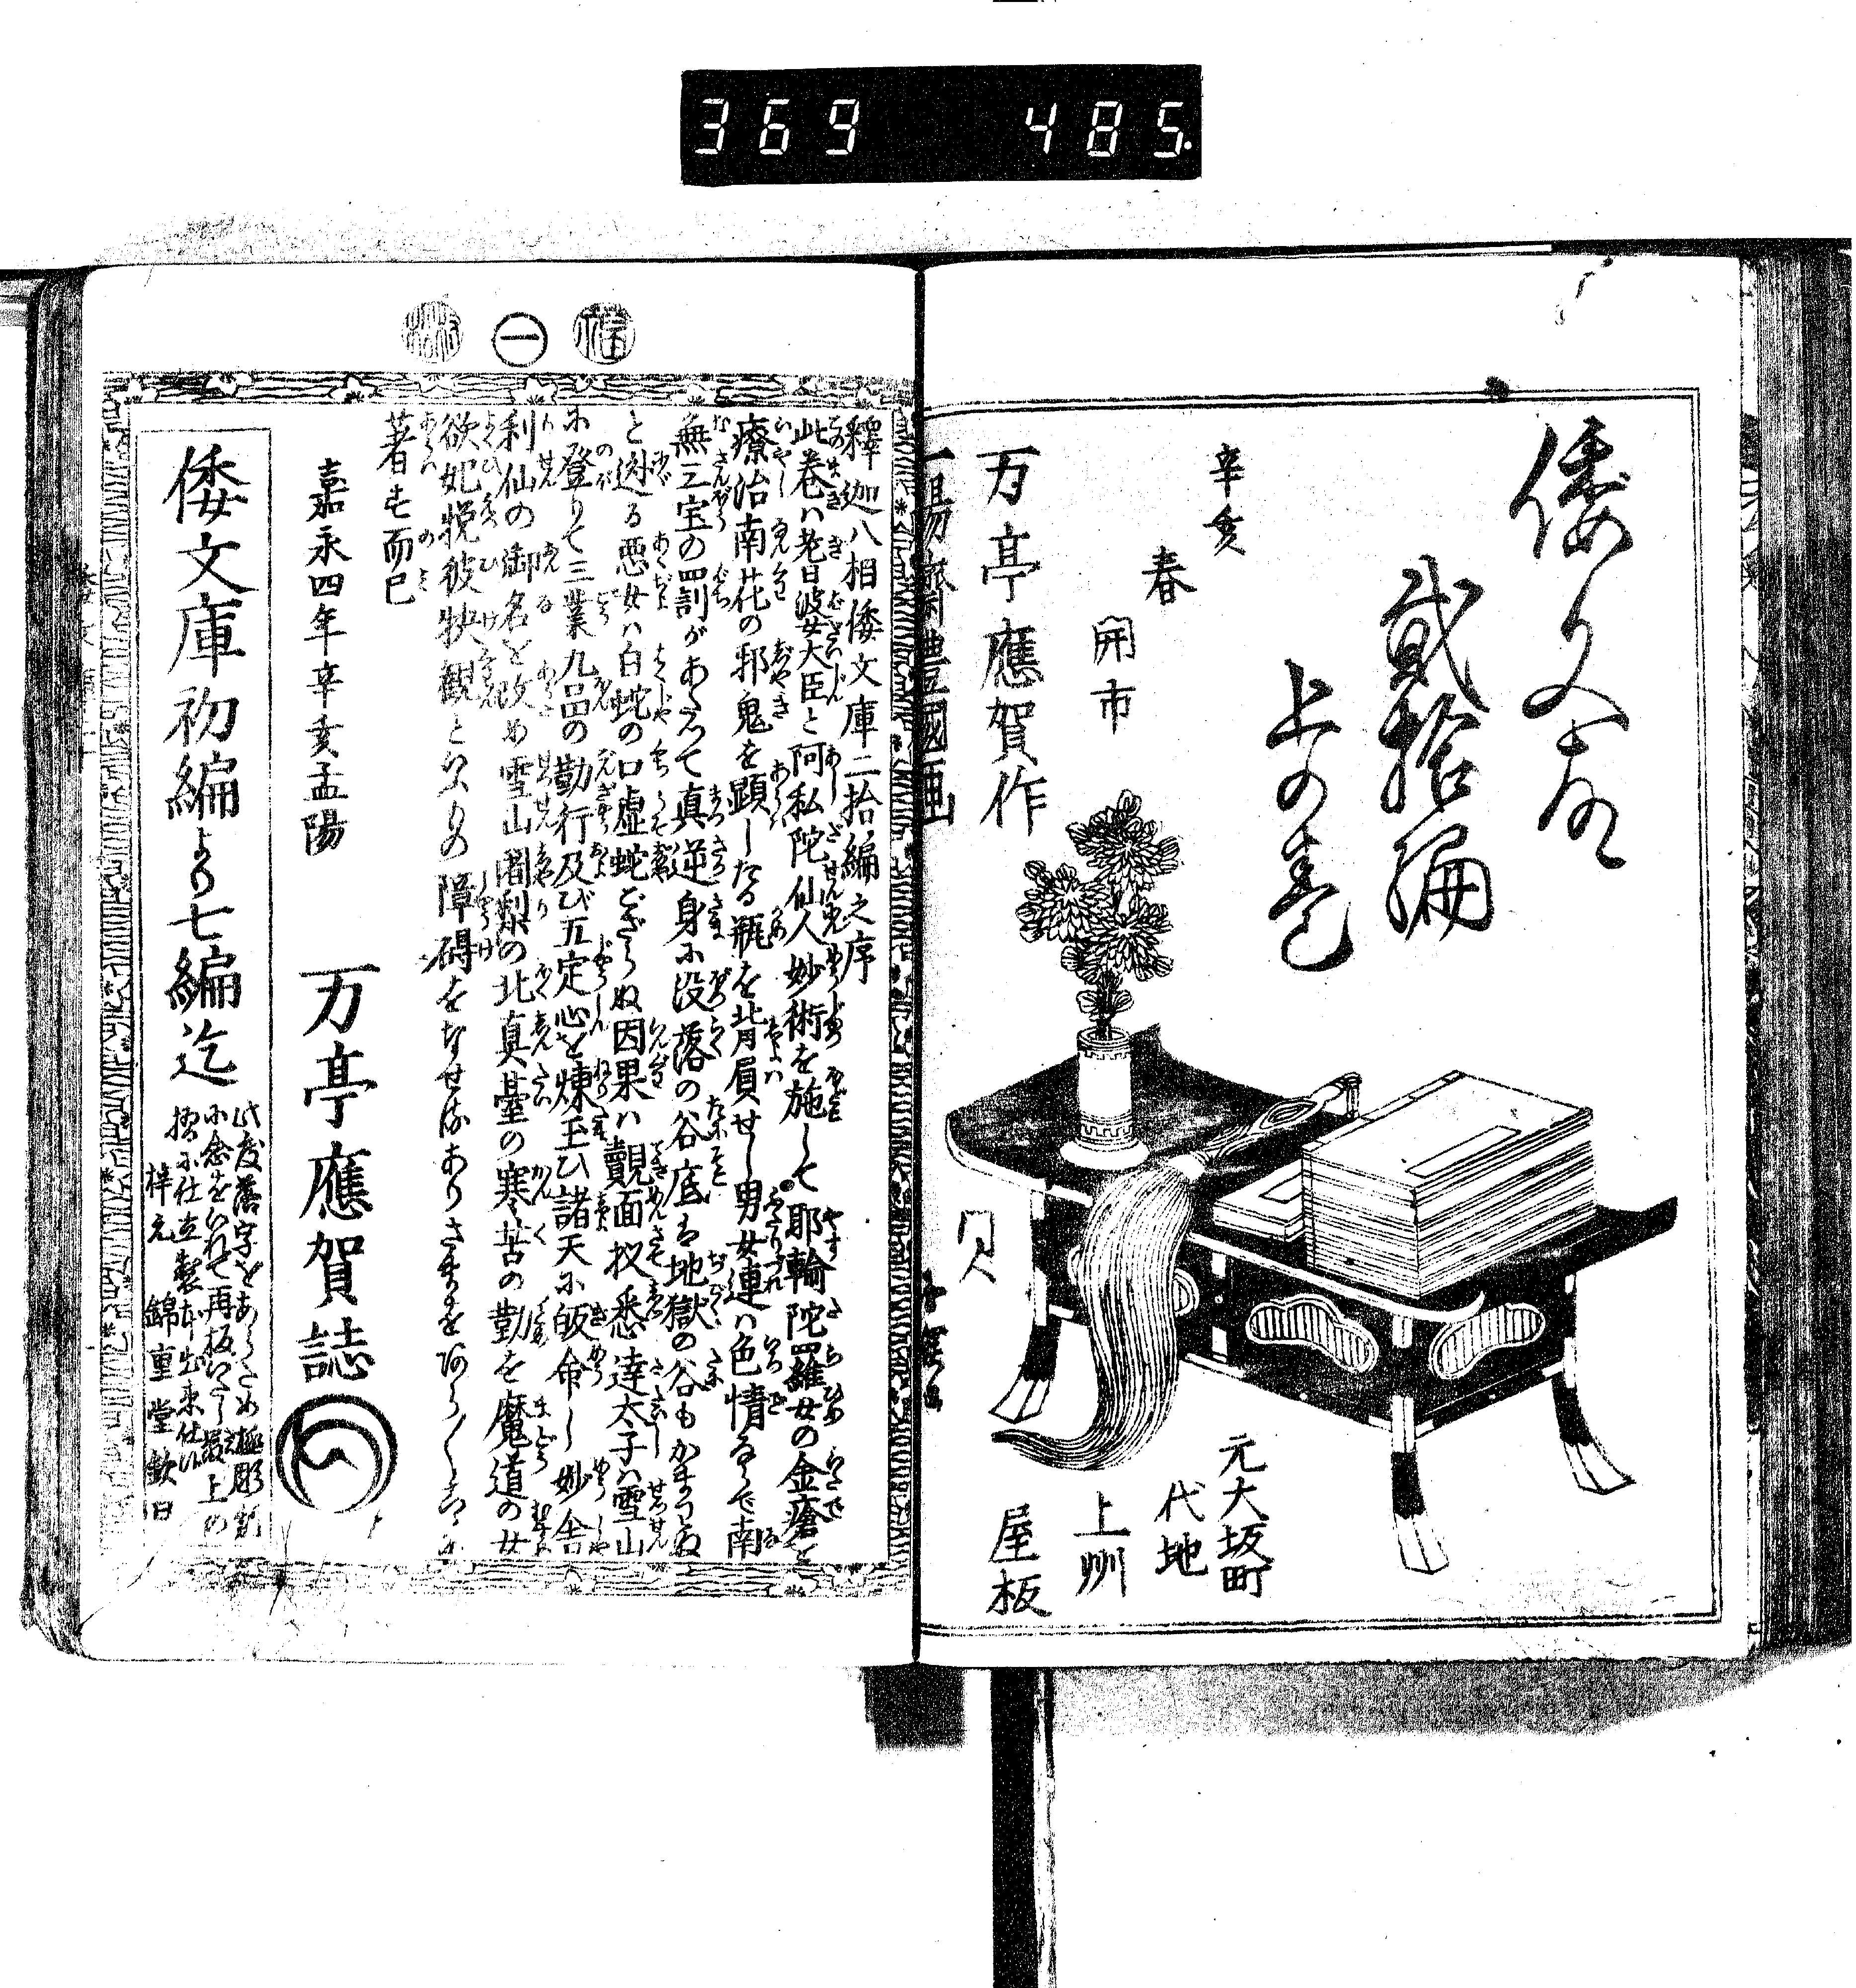 369 485.
倭文庫
貳拾編
上の巻
辛亥
春
開市
万亭應賀作
一陽齋豊國画
元大坂町
代地
上州
屋板
福
一
釋迦八相倭文庫二拾編之序
此巻ハ耆婆大臣と阿私陀仙人妙術を施して耶輸陀羅女の金瘡を
療治南花の邪鬼を顕したる瓶を背負せし男女連ハ色情ならで南
無三宝の四罰があたつて真逆身に没落の谷底は地獄の谷もかまハぬ
と迯る悪女ハ白蛇の口虚蛇どならぬ因果ハ覿面扨悉達太子ハ雪山
に登りて三業九品の勤行及び五定心を煉玉ひ諸天に皈命し妙舎
利仙の御名を改め雪山闍梨の北真臺の寒苦の勤を魔道の女
欲妃悦彼軼観といふもの障碍をなせるありさまをあら〳〵こゝに
著す而已
嘉永四年辛亥孟陽
万亭應賀誌
倭文庫初編より七編迄
此度落字をあらため極彫刻
に念をいれて再板いたし最上の
摺に仕立製本出来仕候
梓元 錦重堂欽曰